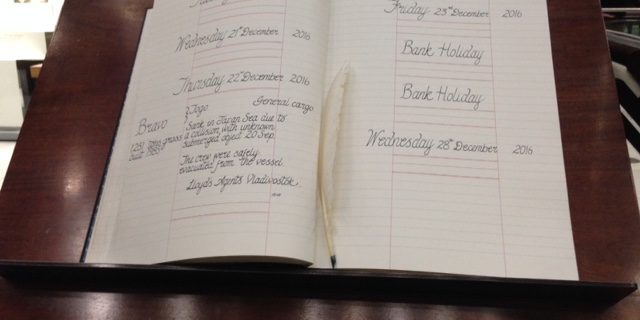 Wednesday 21st December 2016
Thursday 22nd December 2016
Bravo } Togo General cargo
Sank in Japan Sea due to
a collision with unknown
submerged object 20 Sep.
1251 gross
built
The crew were safely
evacuated from the vessel
Lloyd's Agents Vladivostok.
Friday 23rd December 2016
Bank Holiday
Bank Holiday
Wednesday 28th December 2016